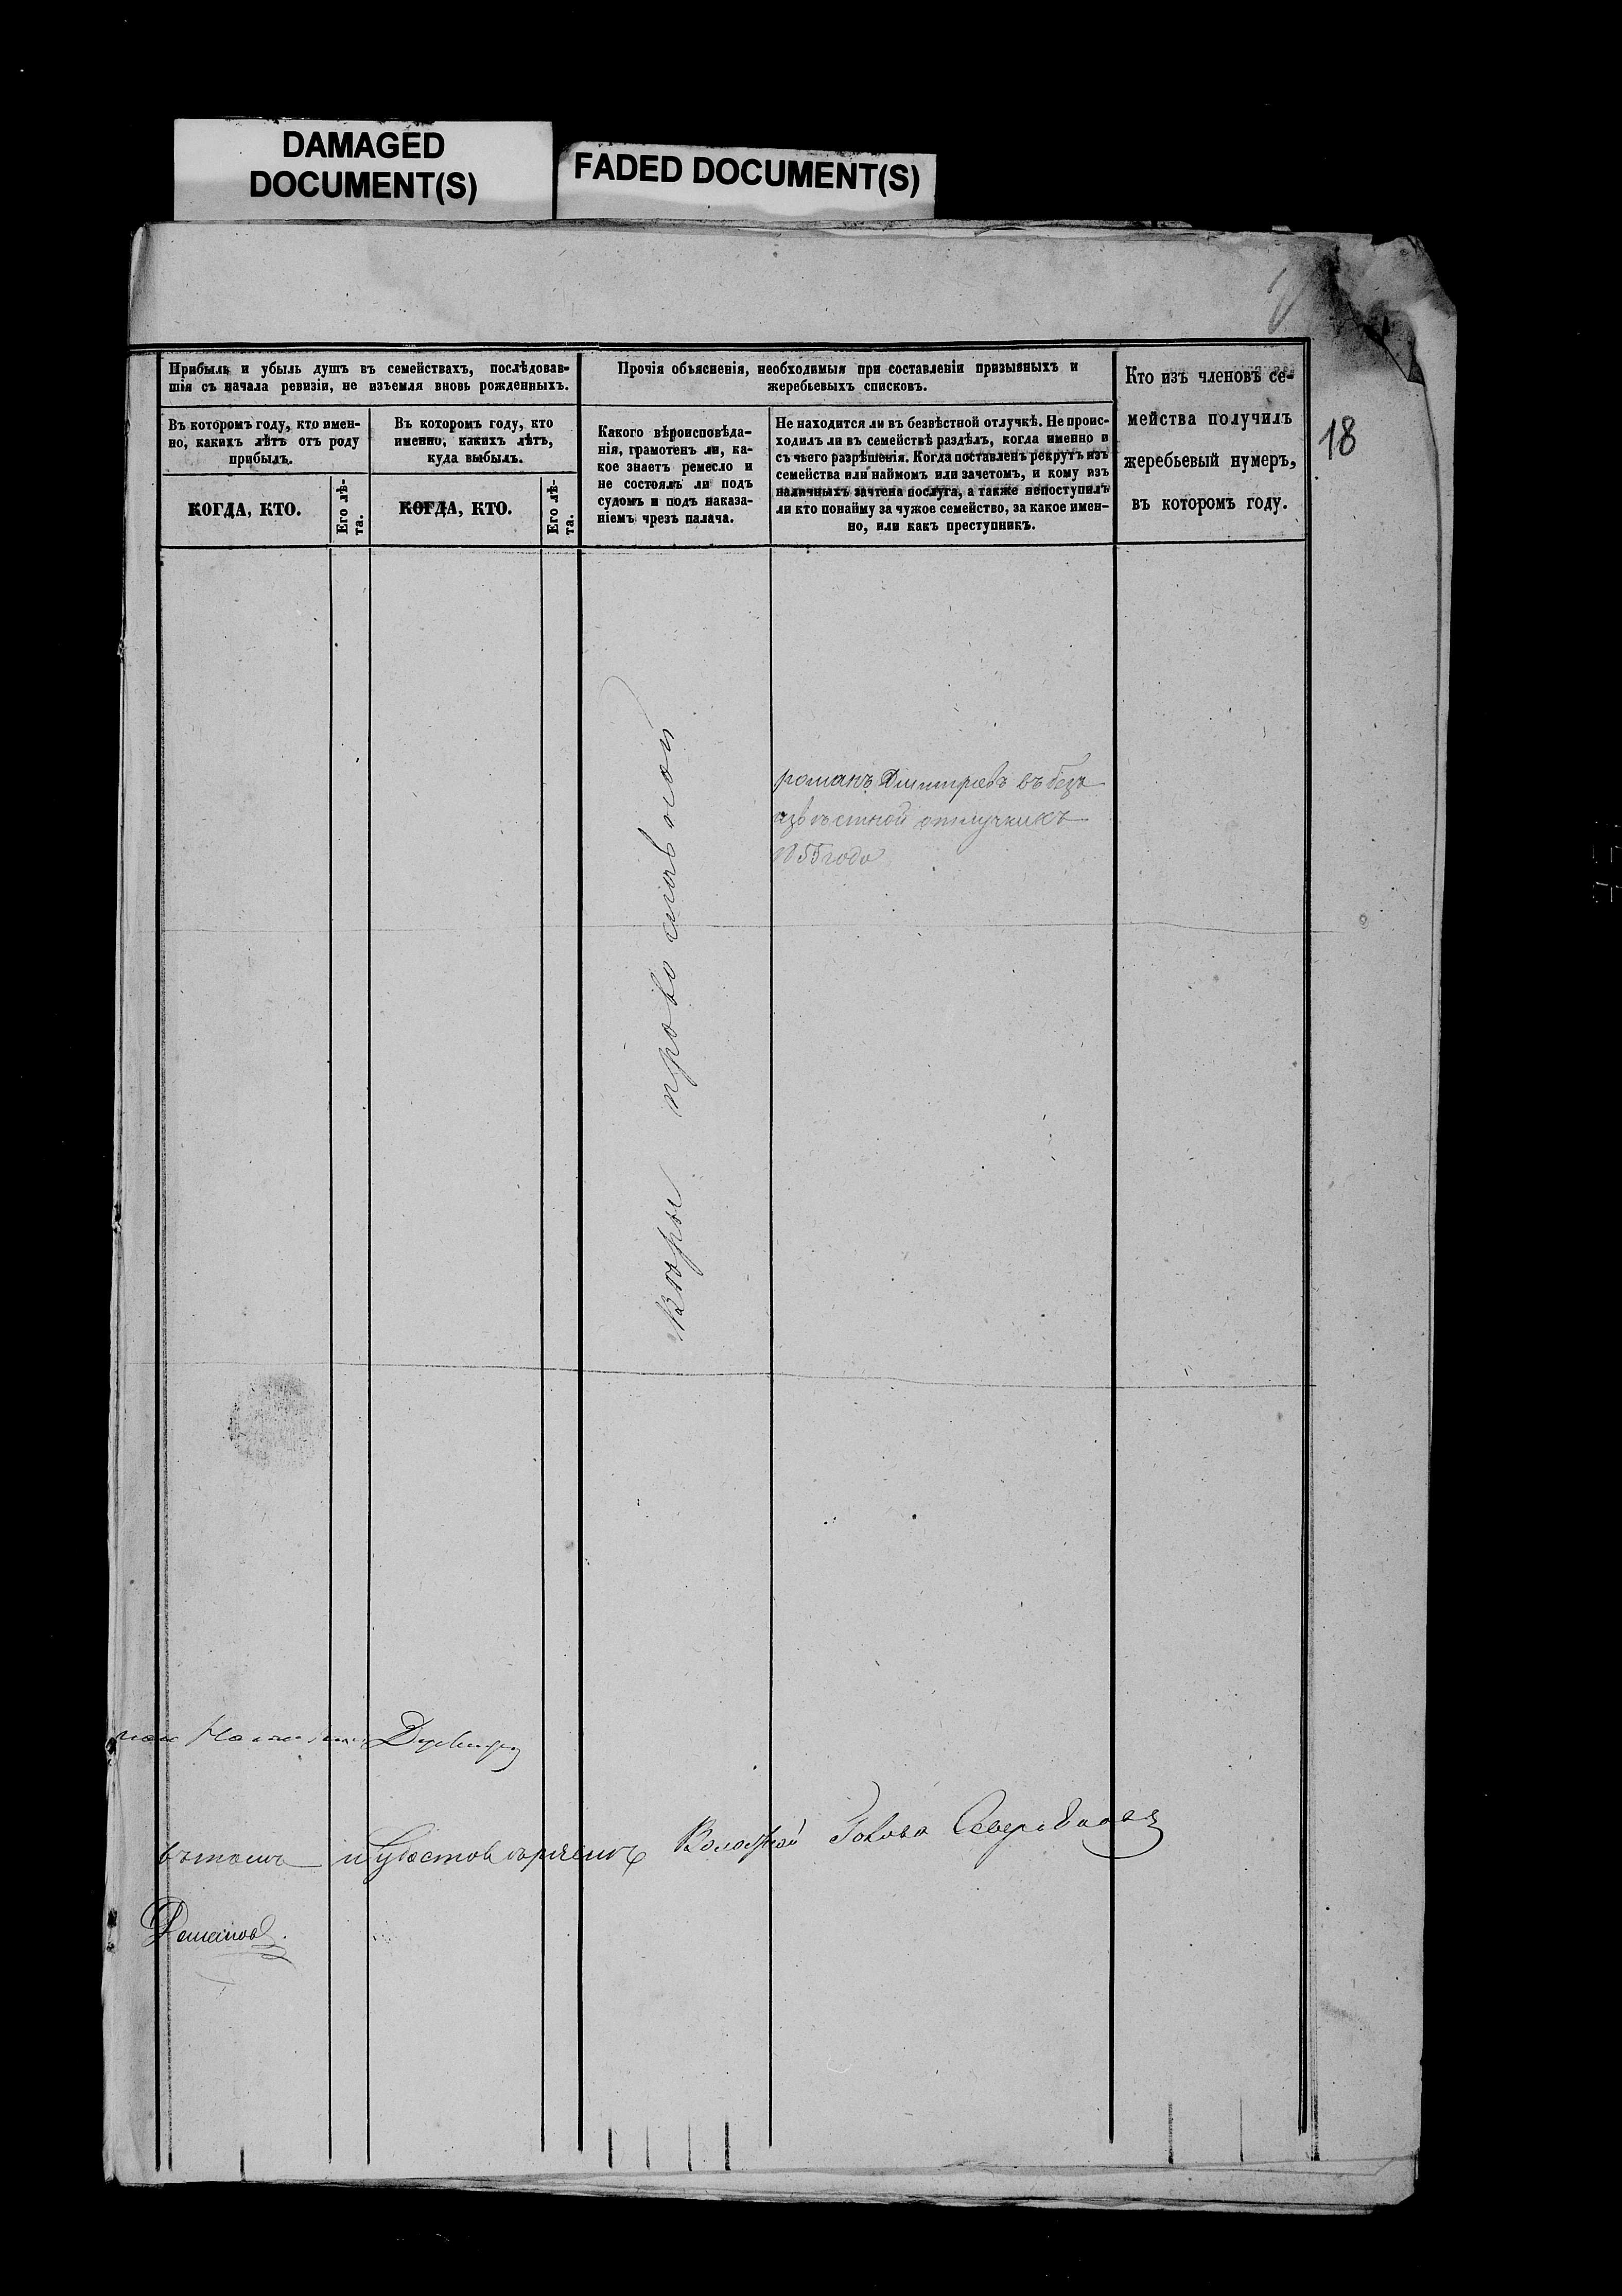 DAMAGED
DOCUMENT(S)
FADED DOCUMENT(S)
Прибыль и убыль душъ въ семействахъ, послѣдовав-
шія съ начала ревизіи, не изъемля вновь рожденныхъ.
Въ которомъ году, кто имен-
но, какихъ лѣтъ отъ роду
прибылъ.
КОГДА, КТО.
Его лѣ-
та.
Въ которомъ году, кто
именно, какихъ лѣтъ,
куда выбылъ.
КОГДА, КТО.
Его лѣ-
та.
Прочія объясненія, необходимыя при составленіи призывныхъ и
жеребьевыхъ списковъ.
Какого вѣроисповѣда-
нія, грамотенъ ли, ка-
кое знаетъ ремесло и
не состоялъ ли подъ
судомъ и подъ наказа-
ніемъ чрезъ палача.
Не находится ли въ безвѣстной отлучкѣ. Не проис-
ходилъ ли въ семействѣ раздѣлъ, когда именно и
съ чьего разрѣшенія. Когда поставленъ рекрутъ изъ
семейства или наймомъ или зачетомъ, и кому изъ
наличныхъ зачтена послуга, а также непоступилъ
ли кто понайму за чужое семейство, за какое имен-
но, или какъ преступникъ.
Кто изъ членовъ се-
мейства получилъ
жеребьевый нумеръ,
въ которомъ году.
18
Вѣры православной
романъ Дмитріевъ въ безъ
извѣстной отлучкѣ
1855 года
въ томъ и удостовѣряемъ Волостной Голова